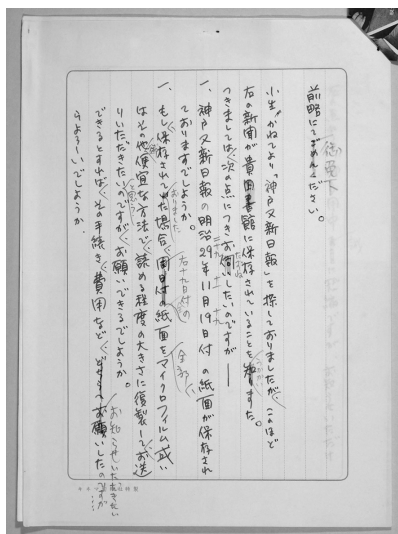 御電下
前略にてごめんください。
小生、かねてより「神戸又新日報」を探しておりましたが、このほど
右の新聞が貴図書館に保存されていることを知りました。
つきましては、次の点につきお伺いしたいのですが——
一、神戸又新日報の明治29年11月19日付の紙面が保存され
ておりますでしょうか。
一、もし保存されてた場合、同日付の紙面をマイクロフィルム或い
はその他便宜な方法で、読める程度の大きさに復製してお送
りいただきたいのですが、お願いできるでしょうか。
できるとすれば、その手続き、費用など、お願いしたのですが
お知らせいただきたい
うよろしいでしょうか
おりました
右十九日付の
全部
二十九
十一
十九